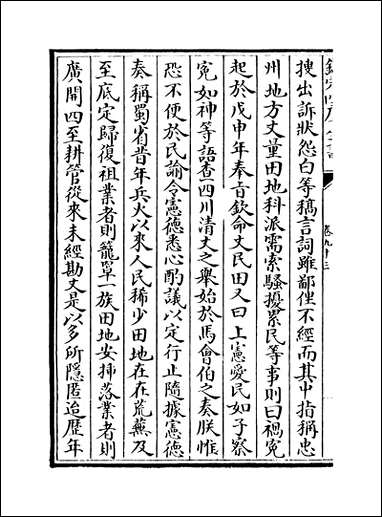 搜出訴狀怨白等稿言詞雖鄙俚不經而其中指稱忠
州地方丈量田地科派需索騷擾累民等事則曰禍冤
起於戊申年奉旨欽命丈民田又曰上憲愛民如子察
冤如神等語查四川清丈之舉始於馬會伯之奏朕惟
恐不便於民諭令憲德悉心酌議以定行止隨據憲德
奏稱蜀省昔年兵火以來人民稀少田地在在荒蕪及
至底定歸復祖業者則籠罩一族田地安揷落業者則
廣開四至耕管從來未經勘丈是以多所隱匿迨歷年